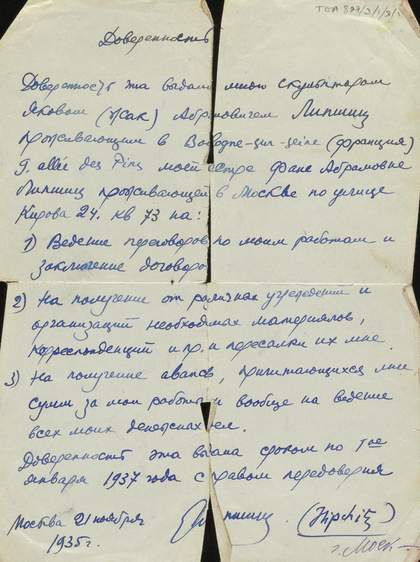 TGA 897/3/1/3/
Доверенность
Доверенность эта выдана мною скульптором
Яковом (Жак) Абрамовичем Липшиц
проживающим в Bologne-sur-seine (франция)
9. allée des Pins моей сестре Фане Абрамовне
Липшиц проживающей в Москве по улице
Кирова 24. кв 73 на:
1) Ведение переговоров по моим работам и
заключение договоро
2) На получение от разных учреждений и
организаций необходимых материялов,
корреспонденций и пр. и пересылки их мне.
3) На получение авансов, причитающихся мне
сумм за мои работы и вообще на ведение
всех моих денежных ел.
Доверенность эта выана сроком по 1ое
января 1937 года с правом передоверия
Москва 21 ноября
1935 г.
Липшиц (Lipchitz)
г. Моск